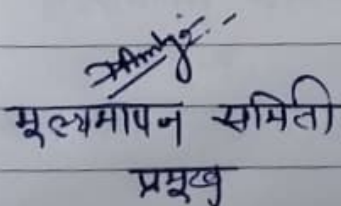 मूल्यमापन समिती
प्रमुख